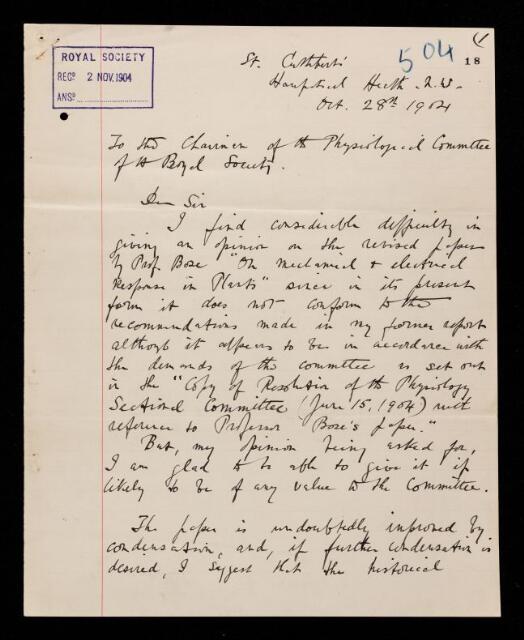 ROYAL SOCIETY
RECD 2 NOV.1904
ANSD
504
(1
18
St. Cuthbert's
Hampstead Heath. N.W.
Oct. 28th 1904
To the Chairman of the Physiological Committee
of the Royal Society.
Dear Sir
I find considerable difficulty in
giving an opinion on the revised paper
by Prof. Bose "On mechanical & electrical
Response in Plants" since in its present
form it does not conform to the
recommendations made in my former report
although it appears to be in accordance with
the demands of the committee as set out
in the "Copy of Resolution of the Physiology
Sectional Committee (June 15, 1904) with
reference to Professor Bose's paper."
But, my opinion being asked for,
I am glad to be able to give it if
likely to be of any value to the Committee.
The paper is undoubtedly improved by
condensation, and, if further condensation is
desired, I suggest that the historical